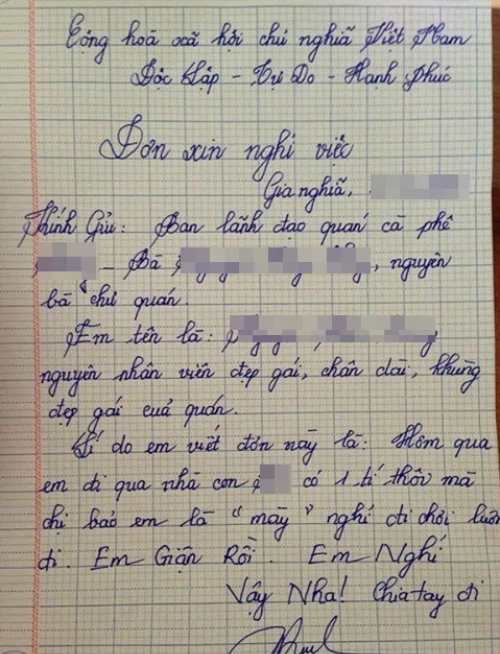 Cộng hoà xã hội chủ nghĩa Việt Nam
Độc Lập - Tự Do - Hạnh Phúc
Đơn xin nghỉ việc
Gia nghĩa,
Kính Gửi: Ban lãnh đạo quán cà phê
- Bà , nguyên
bà chủ quán.
Em tên là:
nguyên nhân viên đẹp gái, chân dài, khùng
đẹp gái cuả quán.
Lí do em viết đơn này là: Hôm qua
em đi qua nhà con có 1 tí thôi mà
chị bảo em là "mày" nghỉ đi chơi luôn
đi. Em Giận Rồi. Em Nghỉ
Vậy Nha! Chia tay đi